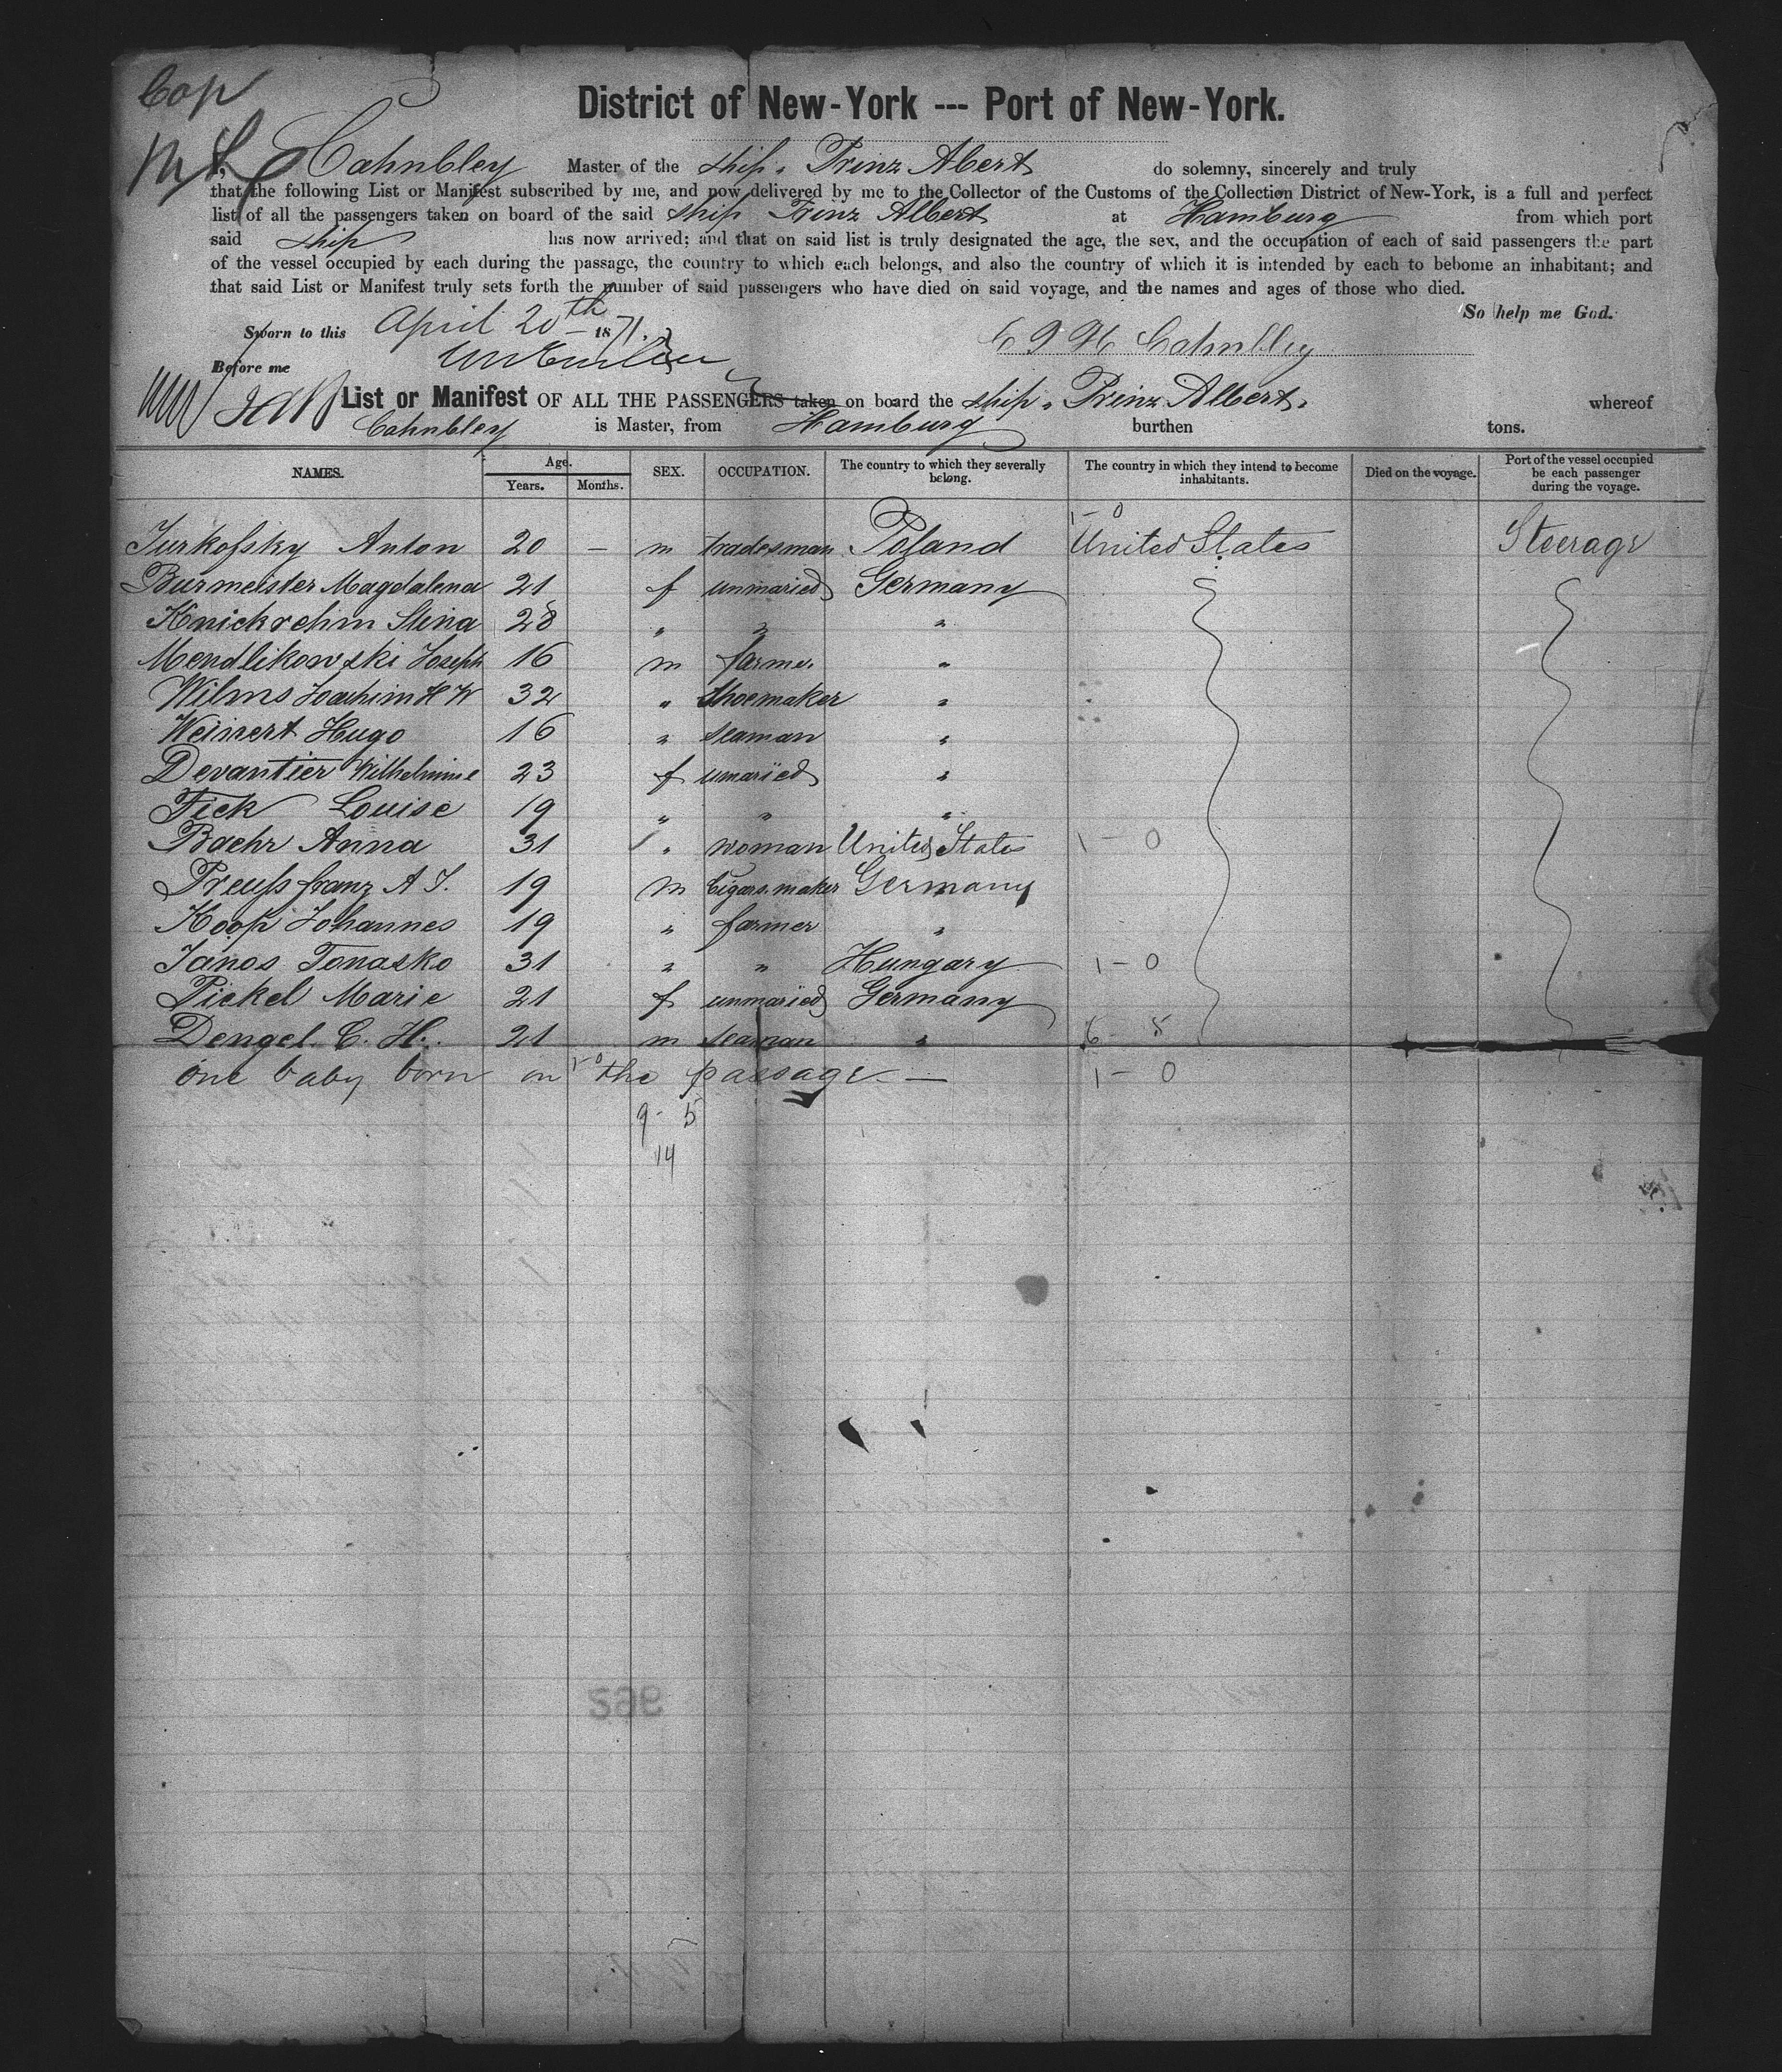 Cop
District of New-York --- Port of New-York.
I, Cahnbley Master of the ship. Prinz Abert do solemny, sincerely and truly
that the following List or Manifest subscribed by me, and now delivered by me to the Collector of the Customs of the Collection District of New-York, is a full and perfect
list of all the passengers taken on board of the said ship Prinz Albert at Hamburg from which port
said ship has now arrived; and that on said list is truly designated the age, the sex, and the occupation of each of said passengers the part
of the vessel occupied by each during the passage, the country to which each belongs, and also the country of which it is intended by each to bebome an inhabitant; and
that said List or Manifest truly sets forth the number of said passengers who have died on said voyage, and the names and ages of those who died.
So help me God.
Sworn to this April 20th 1871.
Cahnbley
Before me
List or Manifest OF ALL THE PASSENGERS taken on board the ship. Prinz Albert. whereof
Cahnbley is Master, from Hamburg burthen tons.
NAMES. Age. Years. Months. SEX. OCCUPATION. The country to which they severally belong. The country in which they intend to become inhabitants. Died on the voyage. Port of the vessel occupied be each passenger during the voyage.
1 - 0
Turkofsky Anton 20 — m tradesman Poland United States Steerage
Burmeister Magdalena 21 f unmaried Germany
Knickrehm Stina 28 " " "
Mendlikowski Joseph 16 m farmer "
Wilms Joachim H W 32 " shoemaker "
Weinert Hugo 16 " seaman "
Devantier Wilhelmine 23 f umaried "
Fick Louise 19 " " "
Baehr Anna 31 " woman United States 1 - 0
Preuss franz A J. 19 m Cigars. maker Germany
Koop Johannes 19 " farmer "
Janos Tonasko 31 " " Hungary 1 - 0
Pickel Marie 21 f unmaried Germany
Dengel. C. H. 21 m seaman " 6 - 5
one baby born on the passage — 1 - 0
1 - 0
9 - 5
14